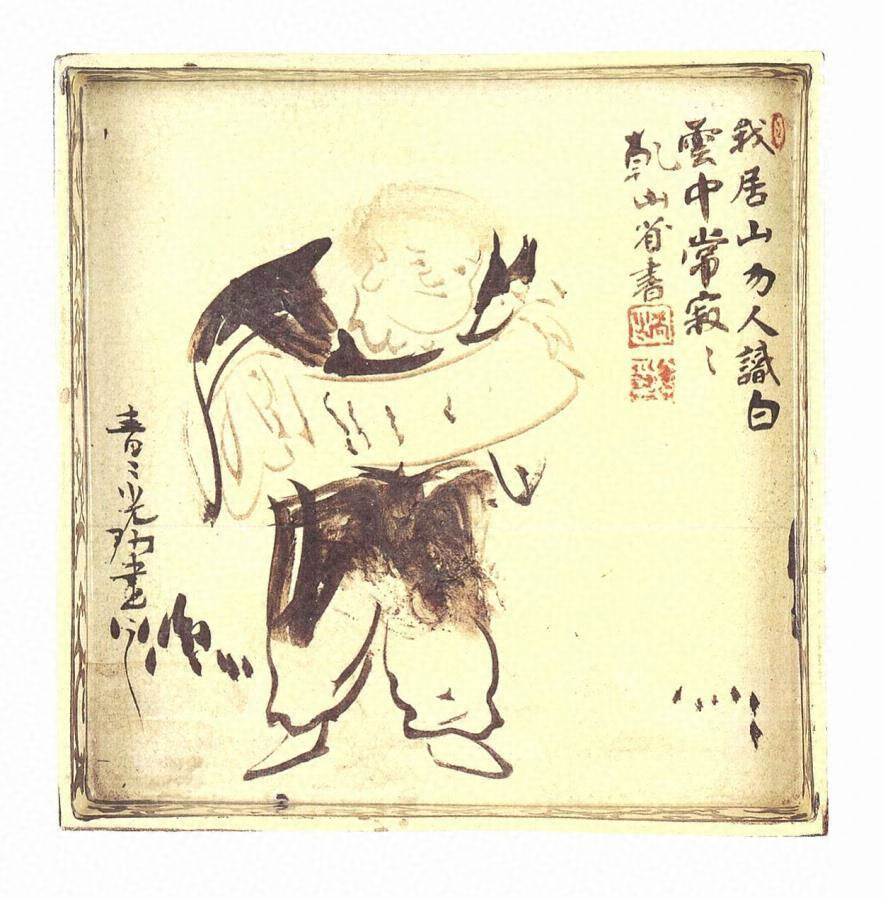 我居山勿人識白
雲中常寂〻
乾山省書
青〻光琳畫之